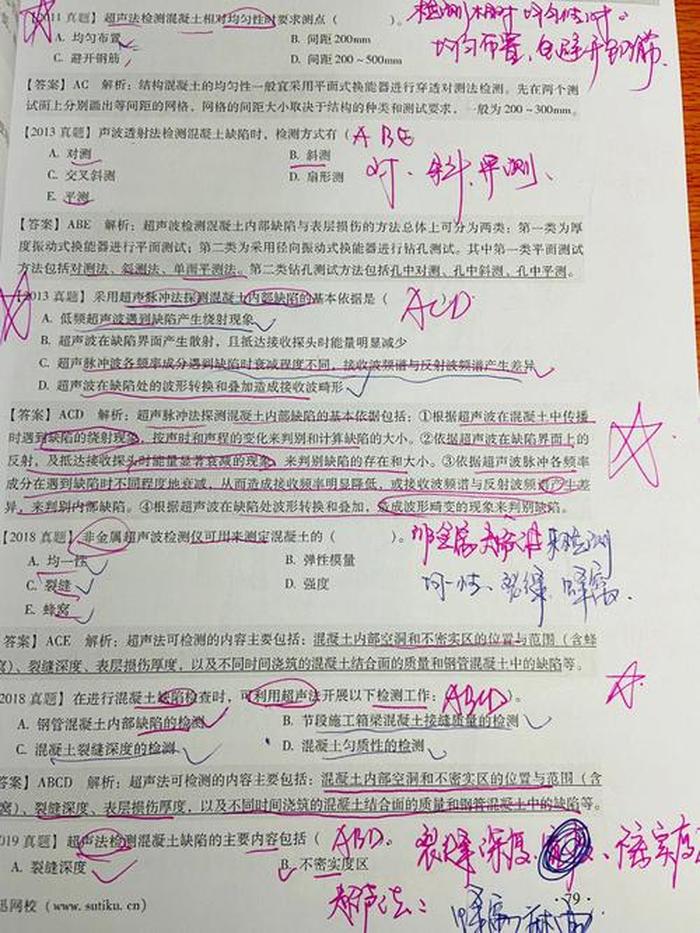 【2011 真题】超声法检测混凝土相对均匀性时要求测点（　　）。 检测相对均匀性时。
A. 均匀布置 B. 间距 200mm 均匀布置,且避开钢筋.
C. 避开钢筋 D. 间距 200～500mm
【答案】AC 解析：结构混凝土的均匀性一般宜采用平面式换能器进行穿透对测法检测。先在两个测
试面上分别画出等间距的网格，网格的间距大小取决于结构的种类和测试要求，一般为 200～300mm。
【2013 真题】声波透射法检测混凝土缺陷时，检测方式有（ ABE
A. 对测 B. 斜测
C. 交叉斜测 D. 扇形测 对、斜、平测、
E. 平测
【答案】ABE 解析：超声波检测混凝土内部缺陷与表层损伤的方法总体上可分为两类：第一类为厚
度振动式换能器进行平面测试；第二类为采用径向振动式换能器进行钻孔测试。其中第一类平面测试
方法包括对测法、斜测法、单面平测法。第二类钻孔测试方法包括孔中对测、孔中斜测、孔中平测。
2013 真题】采用超声脉冲法探测混凝土内部缺陷的基本依据是（ ACD ）。
A. 低频超声波遇到缺陷产生绕射现象
B. 超声波在缺陷界面产生散射，且抵达接收探头时能量明显减少
C. 超声脉冲波各频率成分遇到缺陷时衰减程度不同，接收波频谱与反射波频谱产生差异
D. 超声波在缺陷处的波形转换和叠加造成接收波畸形
【答案】ACD 解析：超声脉冲法探测混凝土内部缺陷的基本依据包括：①根据超声波在混凝土中传播
时遇到缺陷的绕射现象，按声时和声程的变化来判别和计算缺陷的大小。②依据超声波在缺陷界面上的
反射，及抵达接收探头时能量显著衰减的现象，来判别缺陷的存在和大小。③依据超声波脉冲各频率
成分在遇到缺陷时不同程度地衰减，从而造成接收频率明显降低，或接收波频谱与反射波频谱产生差
异，来判别内部缺陷。④根据超声波在缺陷处波形转换和叠加，造成波形畸变的现象来判别缺陷。
【2018 真题】非金属超声波检测仪可用来测定混凝土的（　　）。 来检测
A. 均一性 B. 弹性模量
C. 裂缝 D. 强度 均一性、裂缝、蜂窝.
E. 蜂窝
答案】ACE 解析：超声法可检测的内容主要包括：混凝土内部空洞和不密实区的位置与范围（含蜂
窝）、裂缝深度、表层损伤厚度，以及不同时间浇筑的混凝土结合面的质量和钢管混凝土中的缺陷等。
2018 真题】在进行混凝土缺陷检查时，可利用超声法开展以下检测工作：ABCD ）。
A. 钢管混凝土内部缺陷的检测 B. 节段施工箱梁混凝土接缝质量的检测
C. 混凝土裂缝深度的检测 D. 混凝土匀质性的检测
答案】ABCD 解析：超声法可检测的内容主要包括：混凝土内部空洞和不密实区的位置与范围（含
窝）、裂缝深度、表层损伤厚度，以及不同时间浇筑的混凝土结合面的质量和钢管混凝土中的缺陷等。
019 真题】超声法检测混凝土缺陷的主要内容包括（ ABD。 裂缝深度
A. 裂缝深度 B. 不密实度区
超声法：
网校（www.sutiku.cn） ·79·